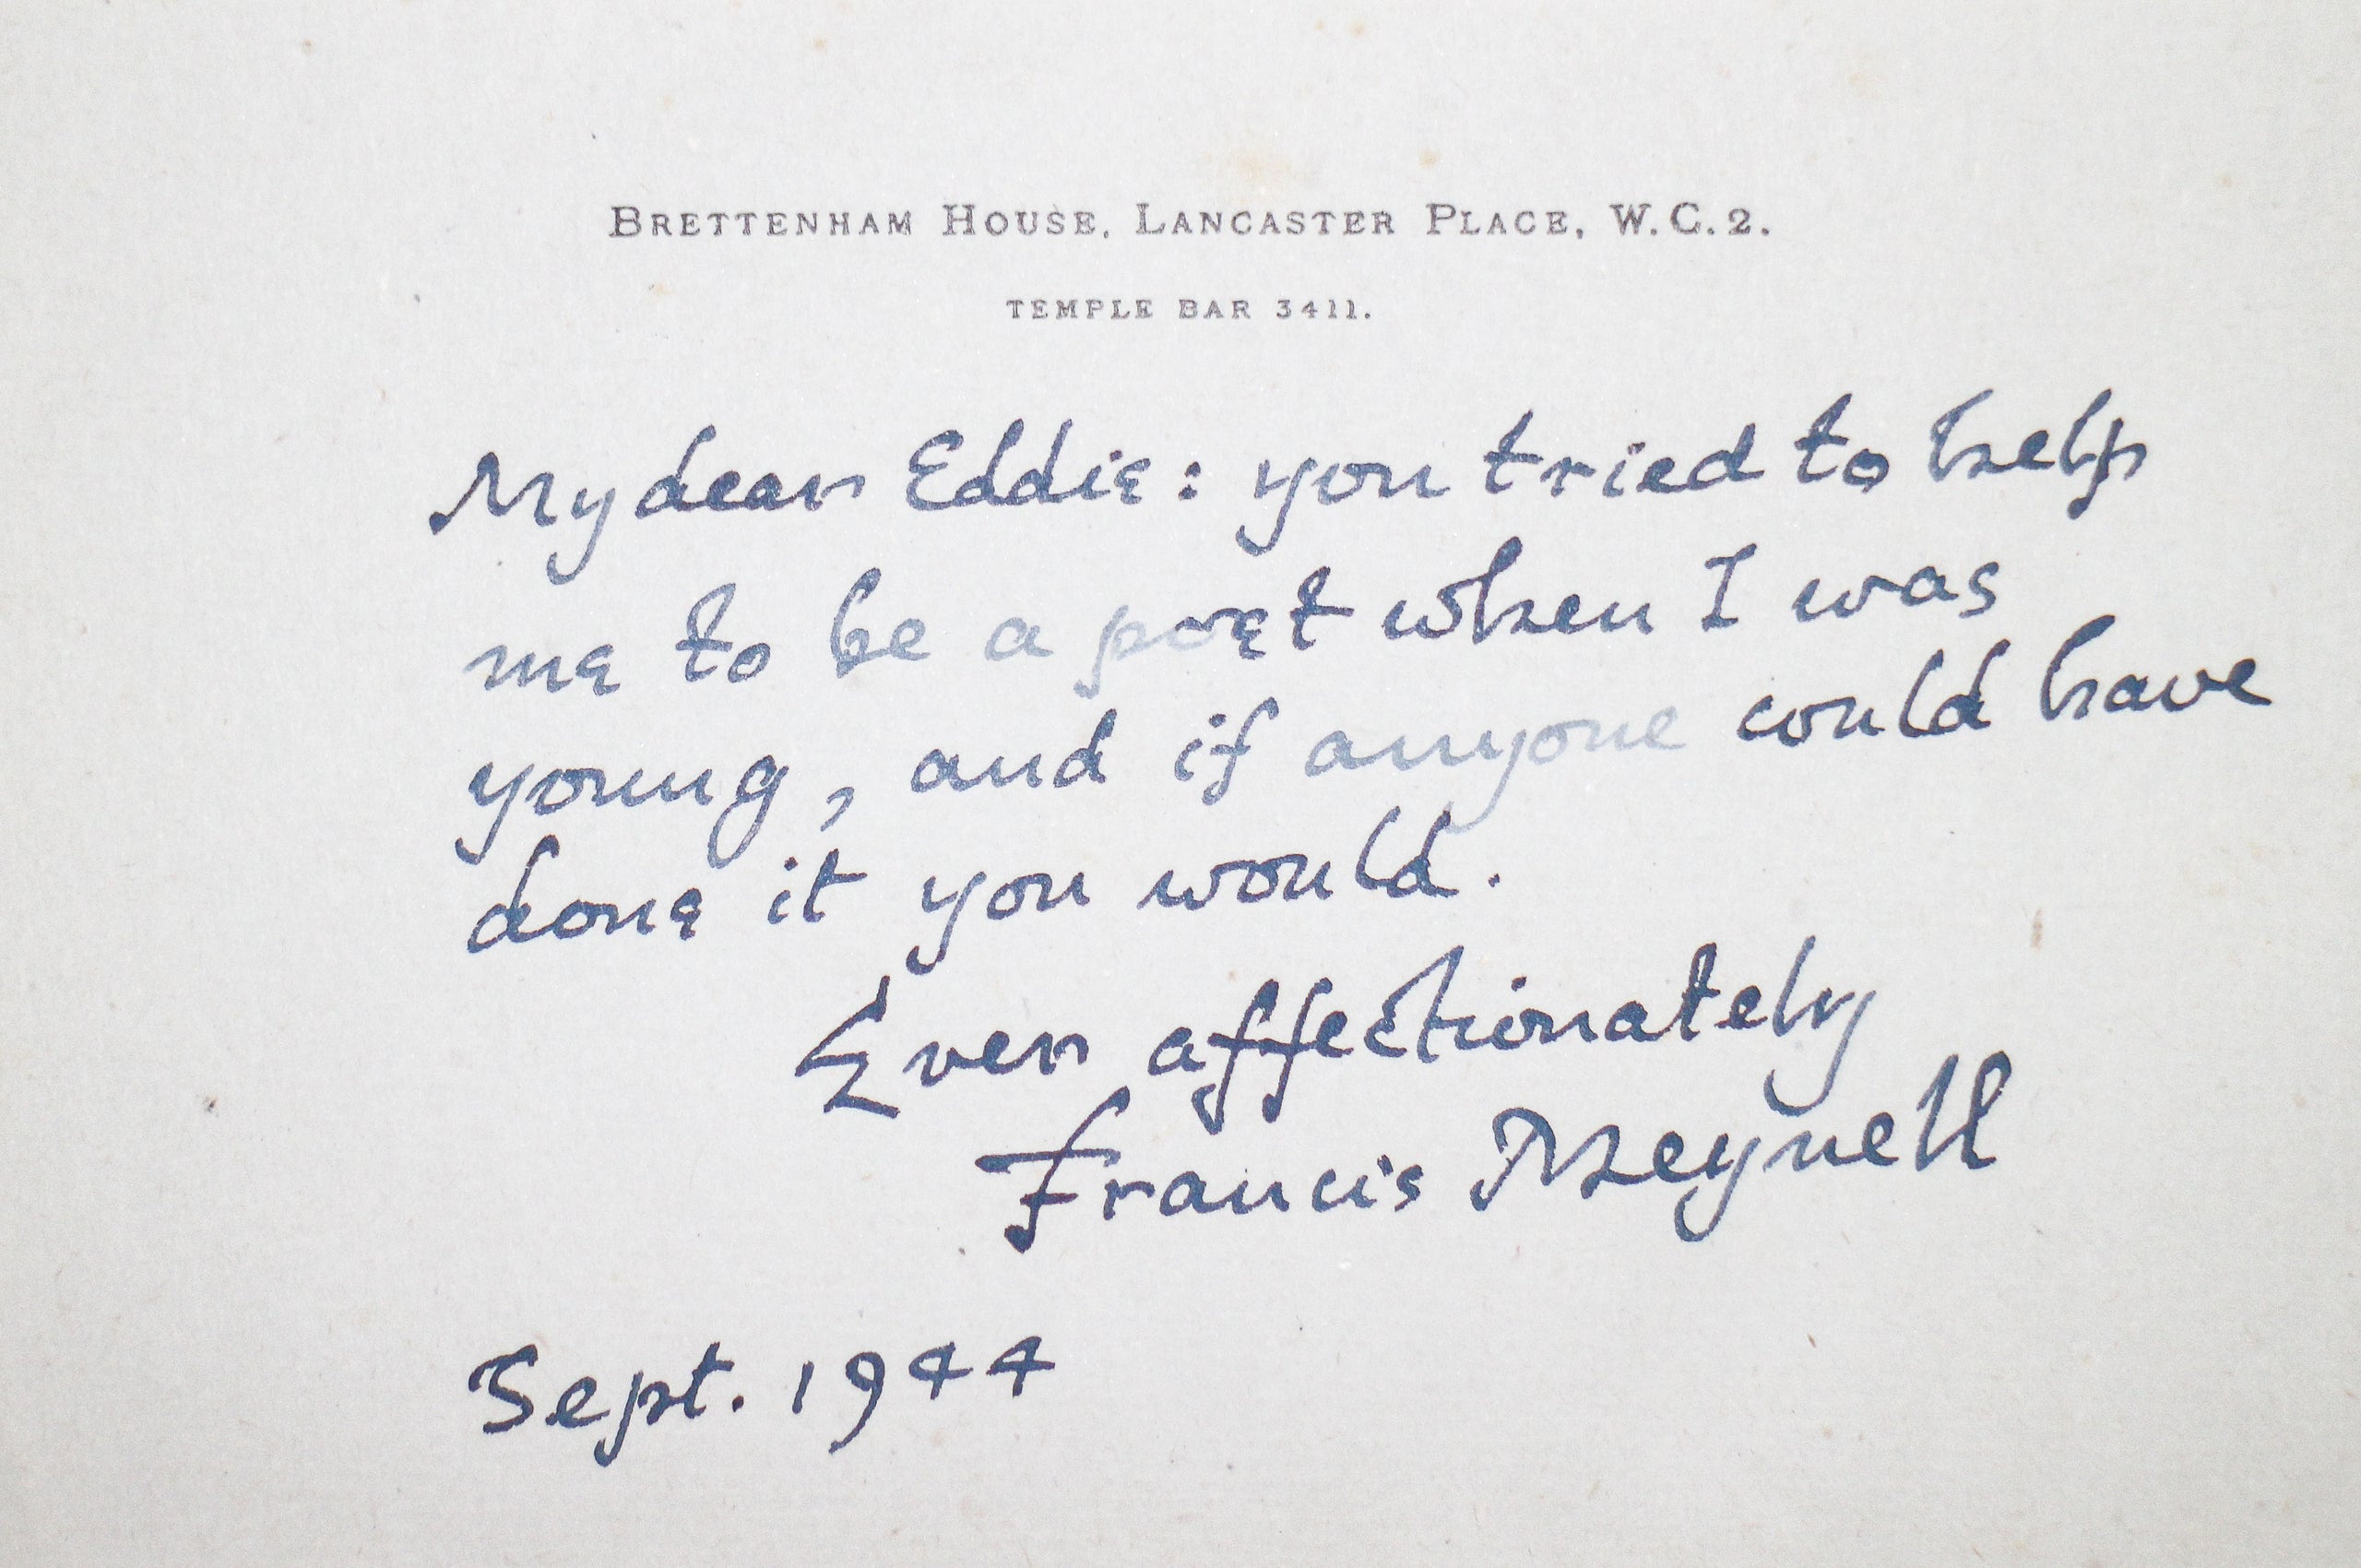 BRETTENHAM HOUSE, LANCASTER PLACE, W.C.2.
TEMPLE BAR 3411.
My dear Eddie: you tried to help
me to be a poet when I was
young, and if anyone could have
done it you would.
Ever affectionately
Francis Meynell
Sept. 1944